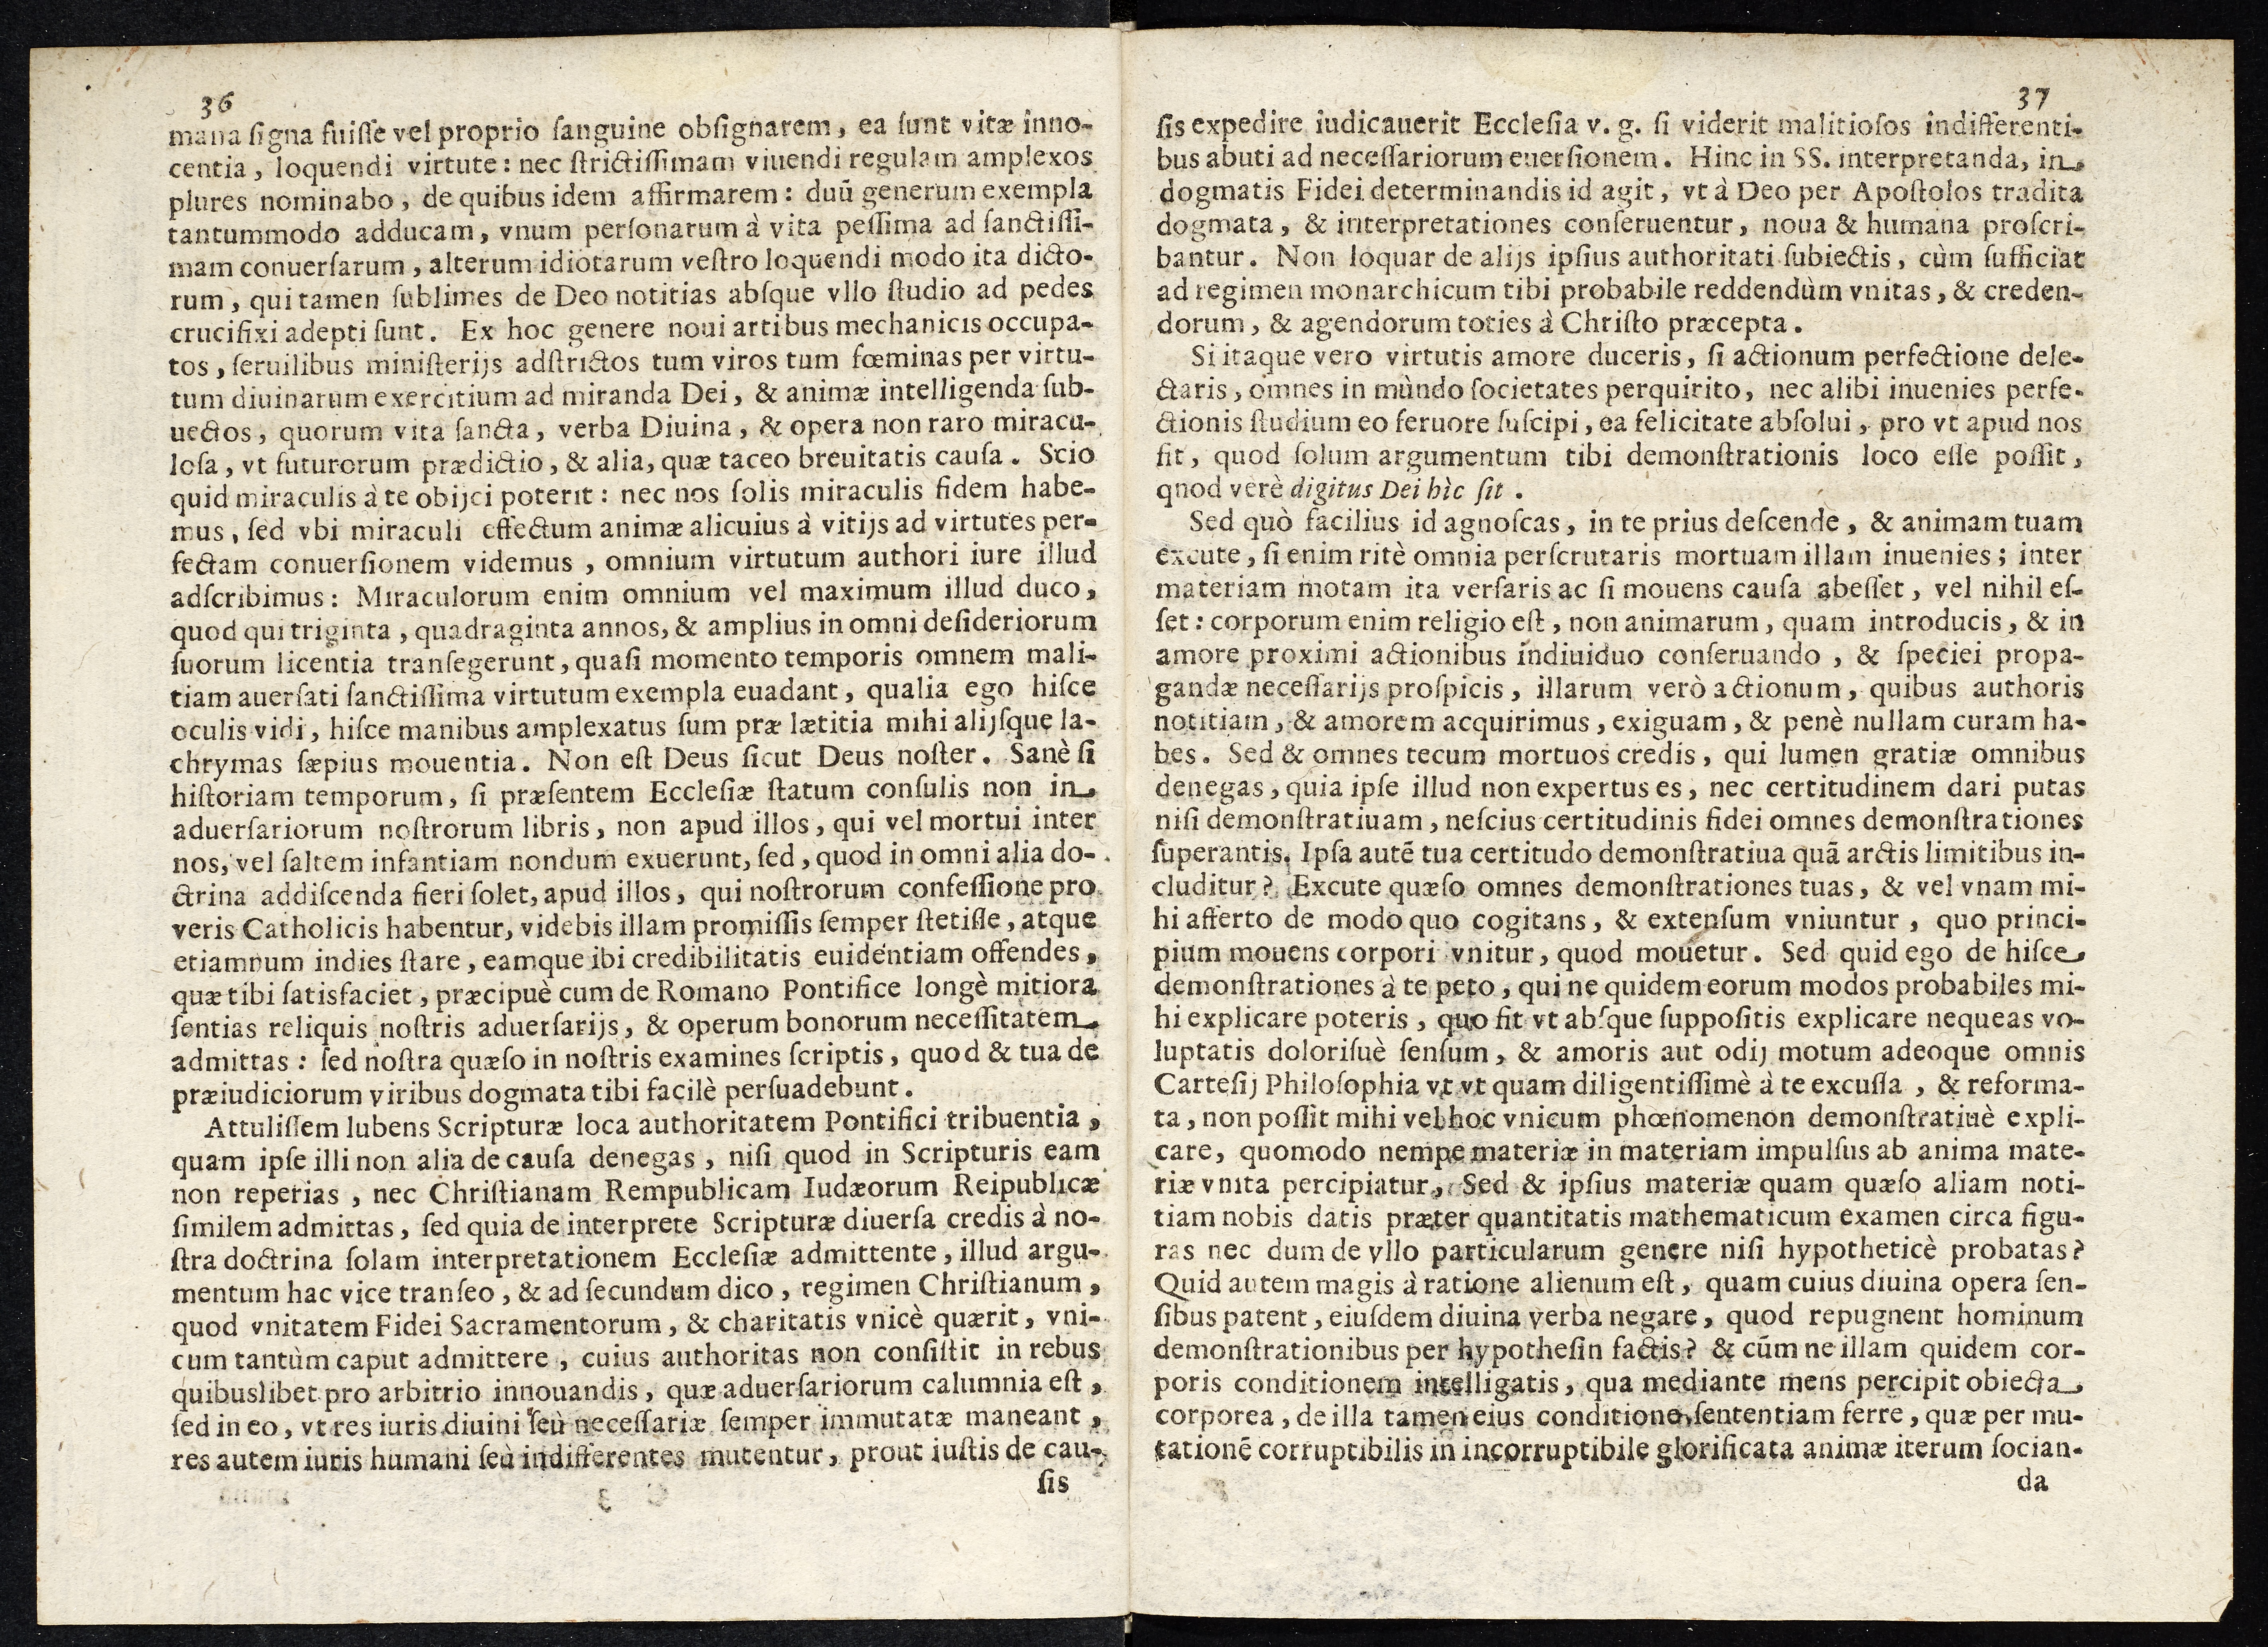 36
mana ſigna fuiſſe vel proprio ſanguine obſignarem, ea ſunt vitæ inno-
centia, loquendi virtute: nec ſtrictiſſimam viuendi regulam amplexos
plures nominabo, de quibus idem affirmarem: duū generum exempla
tantummodo adducam, vnum perſonarum à vita peſſima ad ſanctiſſi-
mam conuerſarum, alterum idiotarum veſtro loquendi modo ita dicto-
rum, qui tamen ſublimes de Deo notitias abſque vllo ſtudio ad pedes
crucifixi adepti ſunt. Ex hoc genere noui artibus mechanicis occupa-
tos, ſeruilibus miniſterijs adſtrictos tum viros tum fœminas per virtu-
tum diuinarum exercitium ad miranda Dei, & animæ intelligenda ſub-
uectos, quorum vita ſancta, verba Diuina, & opera non raro miracu-
loſa, vt futurorum prædictio, & alia, quæ taceo breuitatis cauſa. Scio
quid miraculis à te obijci poterit: nec nos ſolis miraculis fidem habe-
mus, ſed vbi miraculi effectum animæ alicuius à vitijs ad virtutes per-
fectam conuerſionem videmus, omnium virtutum authori iure illud
adſcribimus: Miraculorum enim omnium vel maximum illud duco,
quod qui triginta, quadraginta annos, & amplius in omni deſideriorum
ſuorum licentia tranſegerunt, quaſi momento temporis omnem mali-
tiam auerſati ſanctiſſima virtutum exempla euadant, qualia ego hiſce
oculis vidi, hiſce manibus amplexatus ſum præ lætitia mihi alijſque la-
chrymas ſæpius mouentia. Non eſt Deus ſicut Deus noſter. Sanè ſi
hiſtoriam temporum, ſi præſentem Eccleſiæ ſtatum conſulis non in
aduerſariorum noſtrorum libris, non apud illos, qui vel mortui inter
nos, vel ſaltem infantiam nondum exuerunt, ſed, quod in omni alia do-
ctrina addiſcenda fieri ſolet, apud illos, qui noſtrorum confeſſione pro
veris Catholicis habentur, videbis illam promiſſis ſemper ſtetiſſe, atque
etiamnum indies ſtare, eamque ibi credibilitatis euidentiam offendes,
quæ tibi ſatisfaciet, præcipuè cum de Romano Pontifice longè mitiora
ſentias reliquis noſtris aduerſarijs, & operum bonorum neceſſitatem
admittas: ſed noſtra quæſo in noſtris examines ſcriptis, quod & tua de
præiudiciorum viribus dogmata tibi facilè perſuadebunt.
Attuliſſem lubens Scripturæ loca authoritatem Pontifici tribuentia,
quam ipſe illi non alia de cauſa denegas, niſi quod in Scripturis eam
non reperias, nec Chriſtianam Rempublicam Iudæorum Reipublicæ
ſimilem admittas, ſed quia de interprete Scripturæ diuerſa credis à no-
ſtra doctrina ſolam interpretationem Eccleſiæ admittente, illud argu-
mentum hac vice tranſeo, & ad ſecundum dico, regimen Chriſtianum,
quod vnitatem Fidei Sacramentorum, & charitatis vnicè quærit, vni-
cum tantùm caput admittere, cuius authoritas non conſiſtit in rebus
quibuslibet pro arbitrio innouandis, quæ aduerſariorum calumnia eſt,
ſed in eo, vt res iuris diuini ſeù neceſſariæ ſemper immutatæ maneant,
res autem iuris humani ſeù indifferentes mutentur, prout iuſtis de cau-
ſis
37
ſis expedire iudicauerit Eccleſia v. g. ſi viderit malitioſos indifferenti-
bus abuti ad neceſſariorum euerſionem. Hinc in SS. interpretanda, in
dogmatis Fidei determinandis id agit, vt à Deo per Apoſtolos tradita
dogmata, & interpretationes conſeruentur, noua & humana proſcri-
bantur. Non loquar de alijs ipſius authoritati ſubiectis, cùm ſufficiat
ad regimen monarchicum tibi probabile reddendùm vnitas, & creden-
dorum, & agendorum toties à Chriſto præcepta.
Si itaque vero virtutis amore duceris, ſi actionum perfectione dele-
ctaris, omnes in mùndo ſocietates perquirito, nec alibi inuenies perfe-
ctionis ſtudium eo feruore ſuſcipi, ea felicitate abſolui, pro vt apud nos
fit, quod ſolum argumentum tibi demonſtrationis loco eſſe poſſit,
qnod verè digitus Dei hìc ſit.
Sed quò facilius id agnoſcas, in te prius deſcende, & animam tuam
excute, ſi enim ritè omnia perſcrutaris mortuam illam inuenies; inter
materiam motam ita verſaris ac ſi mouens cauſa abeſſet, vel nihil eſ-
ſet: corporum enim religio eſt, non animarum, quam introducis, & in
amore proximi actionibus indiuiduo conſeruando, & ſpeciei propa-
gandæ neceſſarijs proſpicis, illarum verò actionum, quibus authoris
notitiam, & amorem acquirimus, exiguam, & penè nullam curam ha-
bes. Sed & omnes tecum mortuos credis, qui lumen gratiæ omnibus
denegas, quia ipſe illud non expertus es, nec certitudinem dari putas
niſi demonſtratiuam, neſcius certitudinis fidei omnes demonſtrationes
ſuperantis. Ipſa autē tua certitudo demonſtratiua quā arctis limitibus in-
cluditur? Excute quæſo omnes demonſtrationes tuas, & vel vnam mi-
hi afferto de modo quo cogitans, & extenſum vniuntur, quo princi-
pium mouens corpori vnitur, quod mouetur. Sed quid ego de hiſce
demonſtrationes à te peto, qui ne quidem eorum modos probabiles mi-
hi explicare poteris, quo fit vt abſque ſuppoſitis explicare nequeas vo-
luptatis doloriſuè ſenſum, & amoris aut odij motum adeoque omnis
Carteſij Philoſophia vt vt quam diligentiſſimè à te excuſſa, & reforma-
ta, non poſſit mihi vel hoc vnicum phœnomenon demonſtratiuè expli-
care, quomodo nempe materiæ in materiam impulſus ab anima mate-
riæ vnita percipiatur, Sed & ipſius materiæ quam quæſo aliam noti-
tiam nobis datis præter quantitatis mathematicum examen circa figu-
ras nec dum de vllo particularum genere niſi hypotheticè probatas?
Quid autem magis à ratione alienum eſt, quam cuius diuina opera ſen-
ſibus patent, eiuſdem diuina verba negare, quod repugnent hominum
demonſtrationibus per hypotheſin factis? & cūm ne illam quidem cor-
poris conditionem intelligatis, qua mediante mens percipit obiecta
corporea, de illa tamen eius conditione, ſententiam ferre, quæ per mu-
tationē corruptibilis in incorruptibile glorificata animæ iterum ſocian-
da